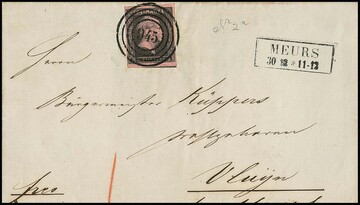 945
MEURS
30 12 * 11-12
Herrn
Bürgermeister Küppers
Wohlgeboren
Vluyn